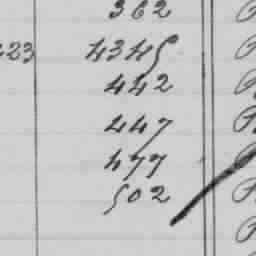 362
423 4345
442
447
477
502